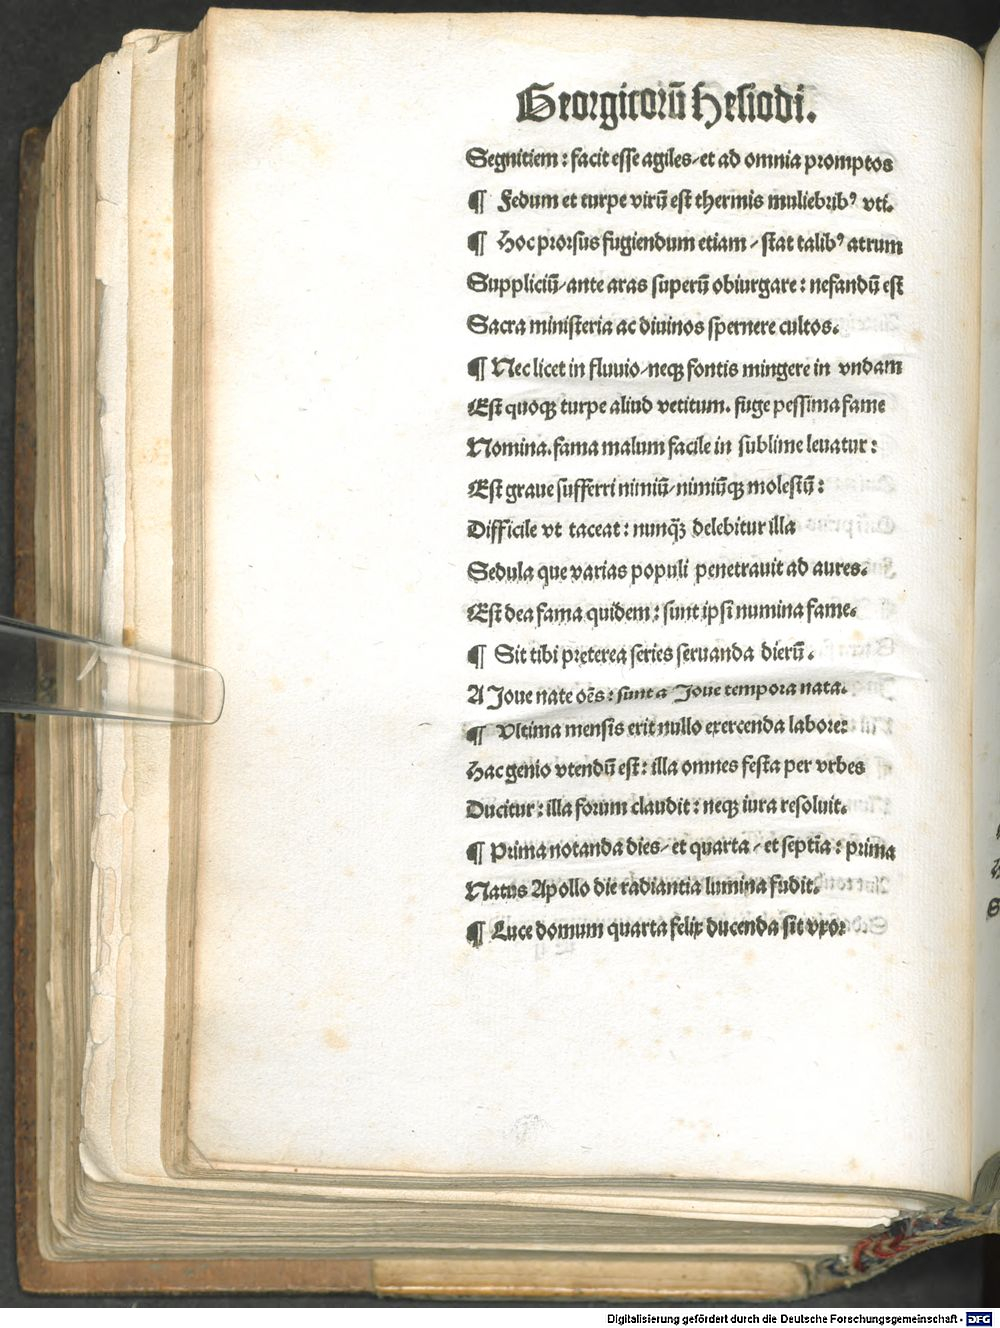 Georgicorū Hesiodi.
Segnitiem : facit esse agiles / et ad omnia promptos
¶ Fedum et turpe virū est thermis muliebribꝰ vti.
¶ Hoc prorsus fugiendum etiam / stat talibꝰ atrum
Suppliciū / ante aras superū obiurgare : nefandū est
Sacra ministeria ac diuinos spernere cultos.
¶ Nec licet in fluuio / neqꝫ fontis mingere in vndam
Est quoqꝫ turpe aliud vetitum. fuge pessima fame
Nomina. fama malum facile in sublime leuatur :
Est graue sufferri nimiū / nimiūqꝫ molestū :
Difficile vt taceat : nunqꝫ̄ delebitur illa
Sedula que varias populi penetrauit ad aures.
Est dea fama quidem : sunt ipsi numina fame.
¶ Sit tibi preterea series seruanda dierū .
A Joue nate oēs : sunt a Joue tempora nata.
¶ Vltima mensis erit nullo exercenda labore :
Hac genio vtendū est : illa omnes festa per vrbes
Ducitur : illa forum claudit : neqꝫ iura resoluit.
¶ Prima notanda dies / et quarta / et septīa : prima
Natus Apollo die radiantia lumina fudit.
¶ Luce domum quarta felix ducenda sit vxor
Digitalisierung gefördert durch die Deutsche Forschungsgemeinschaft - DFG